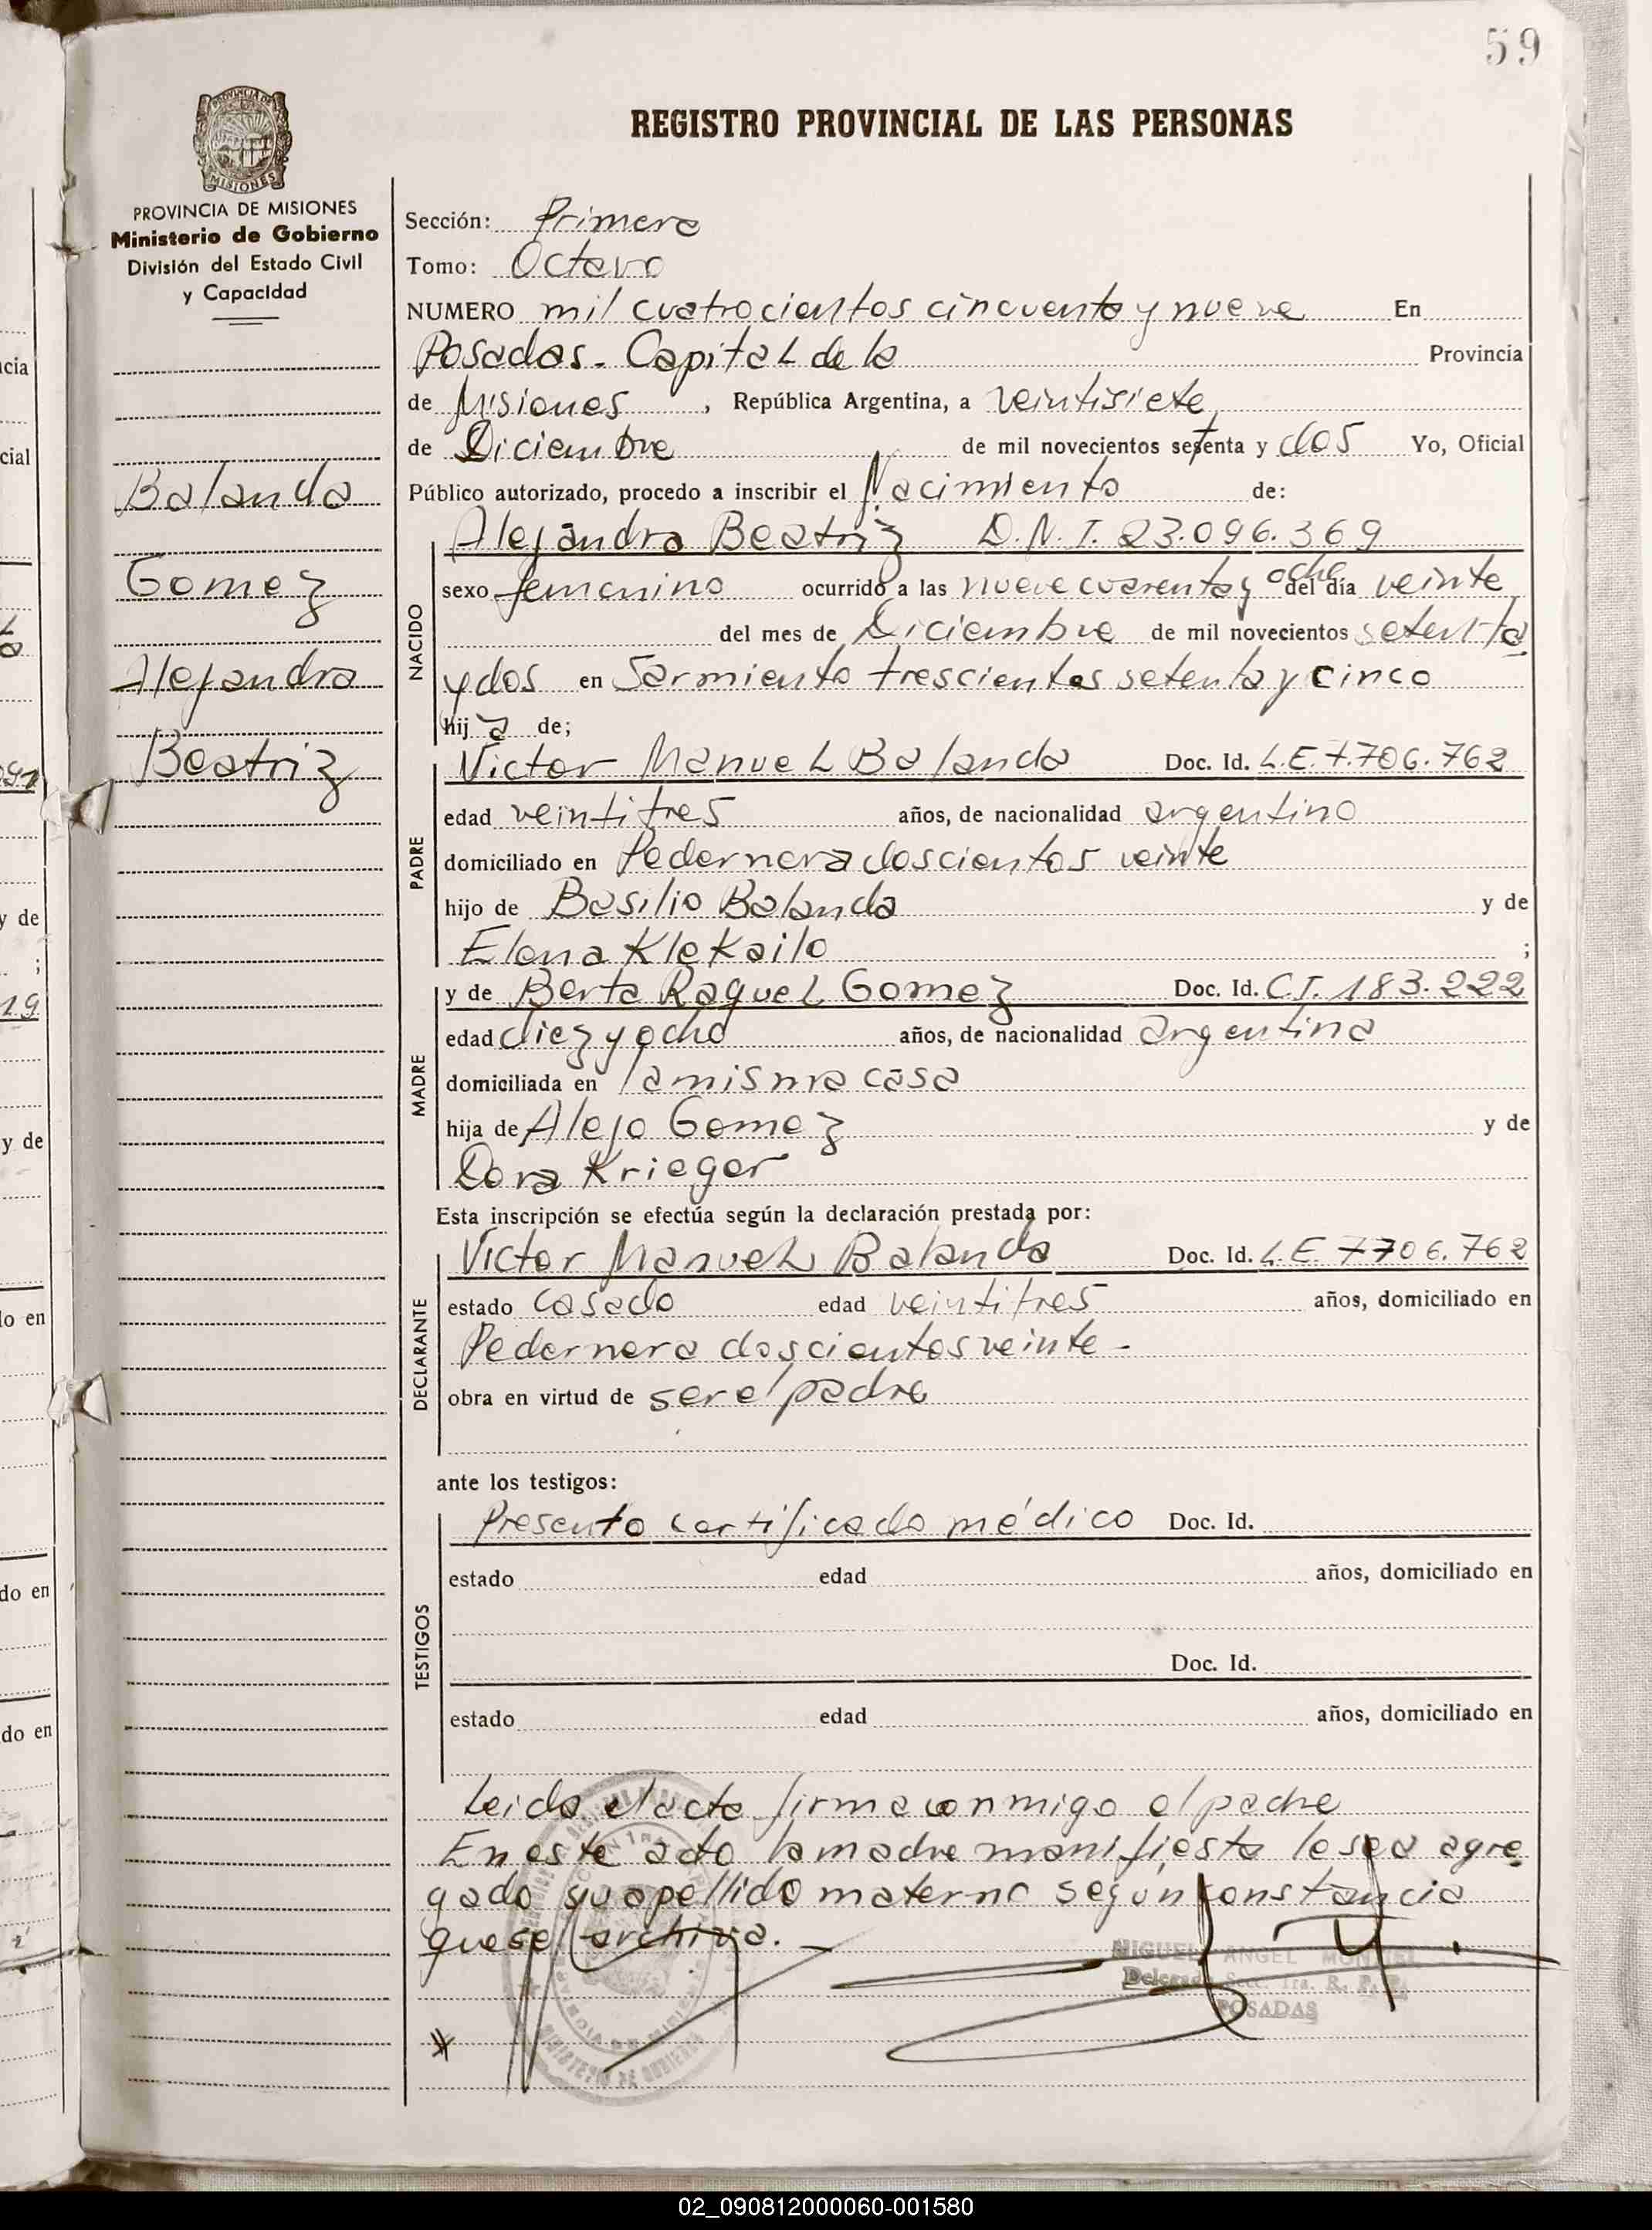 59
REGISTRO PROVINCIAL DE LAS PERSONAS
PROVINCIA DE MISIONES
Ministerio de Gobierno
División del Estado Civil
y Capacidad
Balanda
Gomez
Alejandra
Beatriz
Sección: Primera
Tomo: Octavo
NUMERO mil cuatrocientos cincuenta y nueve En
Posadas - Capital de la Provincia
de Misiones, República Argentina, a veintisiete
de Diciembre de mil novecientos setenta y dos Yo, Oficial
Público autorizado, procedo a inscribir el Nacimiento de:
Alejandra Beatriz D.N.I. 23.096.369
NACIDO
sexo femenino ocurrido a las nueve cuarenta y ocho del día veinte
del mes de Diciembre de mil novecientos setenta
y dos en Sarmiento trescientos setenta y cinco
hija de;
PADRE
Victor Manuel Balanda Doc. Id. L.E. 7.706.762
edad veintitres años, de nacionalidad argentino
domiciliado en Pedernera doscientos veinte
hijo de Basilio Balanda y de
Elena Klekailo ;
MADRE
y de Berta Raquel Gomez Doc. Id. C.I. 183.222
edad diez y ocho años, de nacionalidad argentina
domiciliada en la misma casa
hija de Alejo Gomez y de
Dora Krieger
Esta inscripción se efectúa según la declaración prestada por:
DECLARANTE
Victor Manuel Balanda Doc. Id. L.E. 7706.762
estado casado edad veintitres años, domiciliado en
Pedernera doscientos veinte -
obra en virtud de ser el padre
ante los testigos:
TESTIGOS
Presento certificado médico Doc. Id.
estado edad años, domiciliado en
Doc. Id.
estado edad años, domiciliado en
Leida el acta firma conmigo el padre
En este acto la madre manifiesta le sea agre
gado su apellido materno según constancia
que se archiva. -
MIGUEL ANGEL
Delegado Secc. 1ra. R. P. P.
POSADAS
02_090812000060-001580